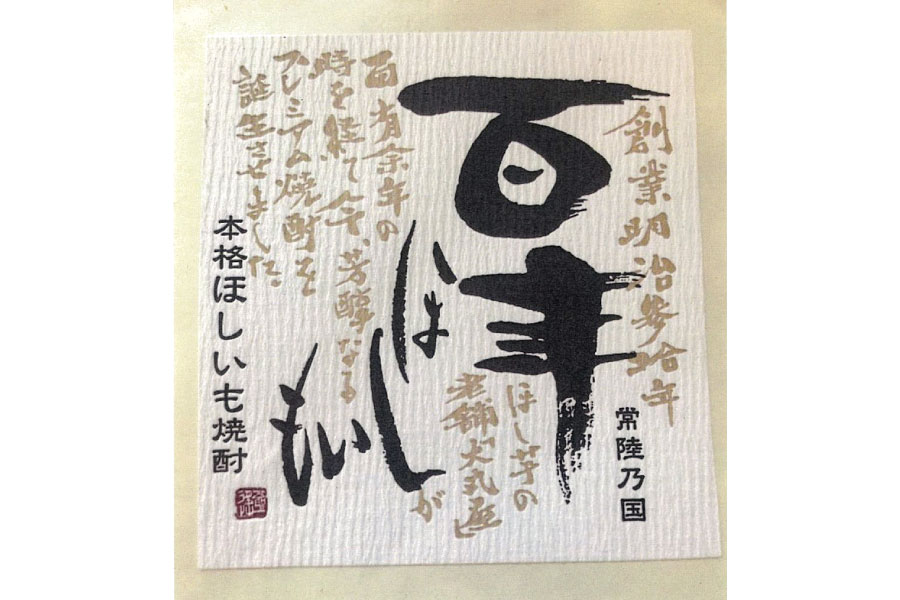 創業明治参拾年
常陸乃国
百年
ほしいも
ほし芋の
老舗
が
百有余年の
時を経て今、芳醇なる
プレミアム焼酎を
誕生させました。
本格ほしいも焼酎